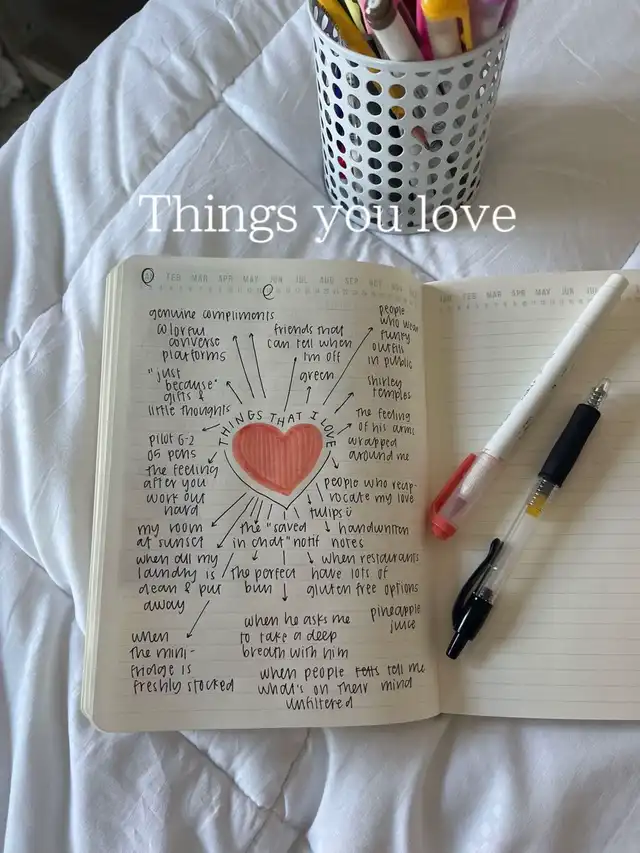 Things you love
FEB MAR APR MAY JUN JUL AUG SEP OCT NOV
genuine compliments
colorful
converse
platforms
friends that
can tell when
I'm off
people
who wear
funky
outfits
in public
"just
because"
gifts &
little thoughts
green
shirley
temples
THINGS THAT I LOVE
the feeling
of his arms
wrapped
around me
pilot G-2
05 pens
the feeling
after you
work out
hard
people who recip-
rocate my love
tulips ü
my room
at sunset
the "saved
in chat" notif
handwritten
notes
when all my
laundry is
clean & put
away
the perfect
bun
when restaurants
have lots of
gluten free options
pineapple
juice
when he asks me
to take a deep
breath with him
when
the mini-
fridge is
freshly stocked
when people tells tell me
what's on their mind
unfiltered
MAR APR MAY JUN JUL